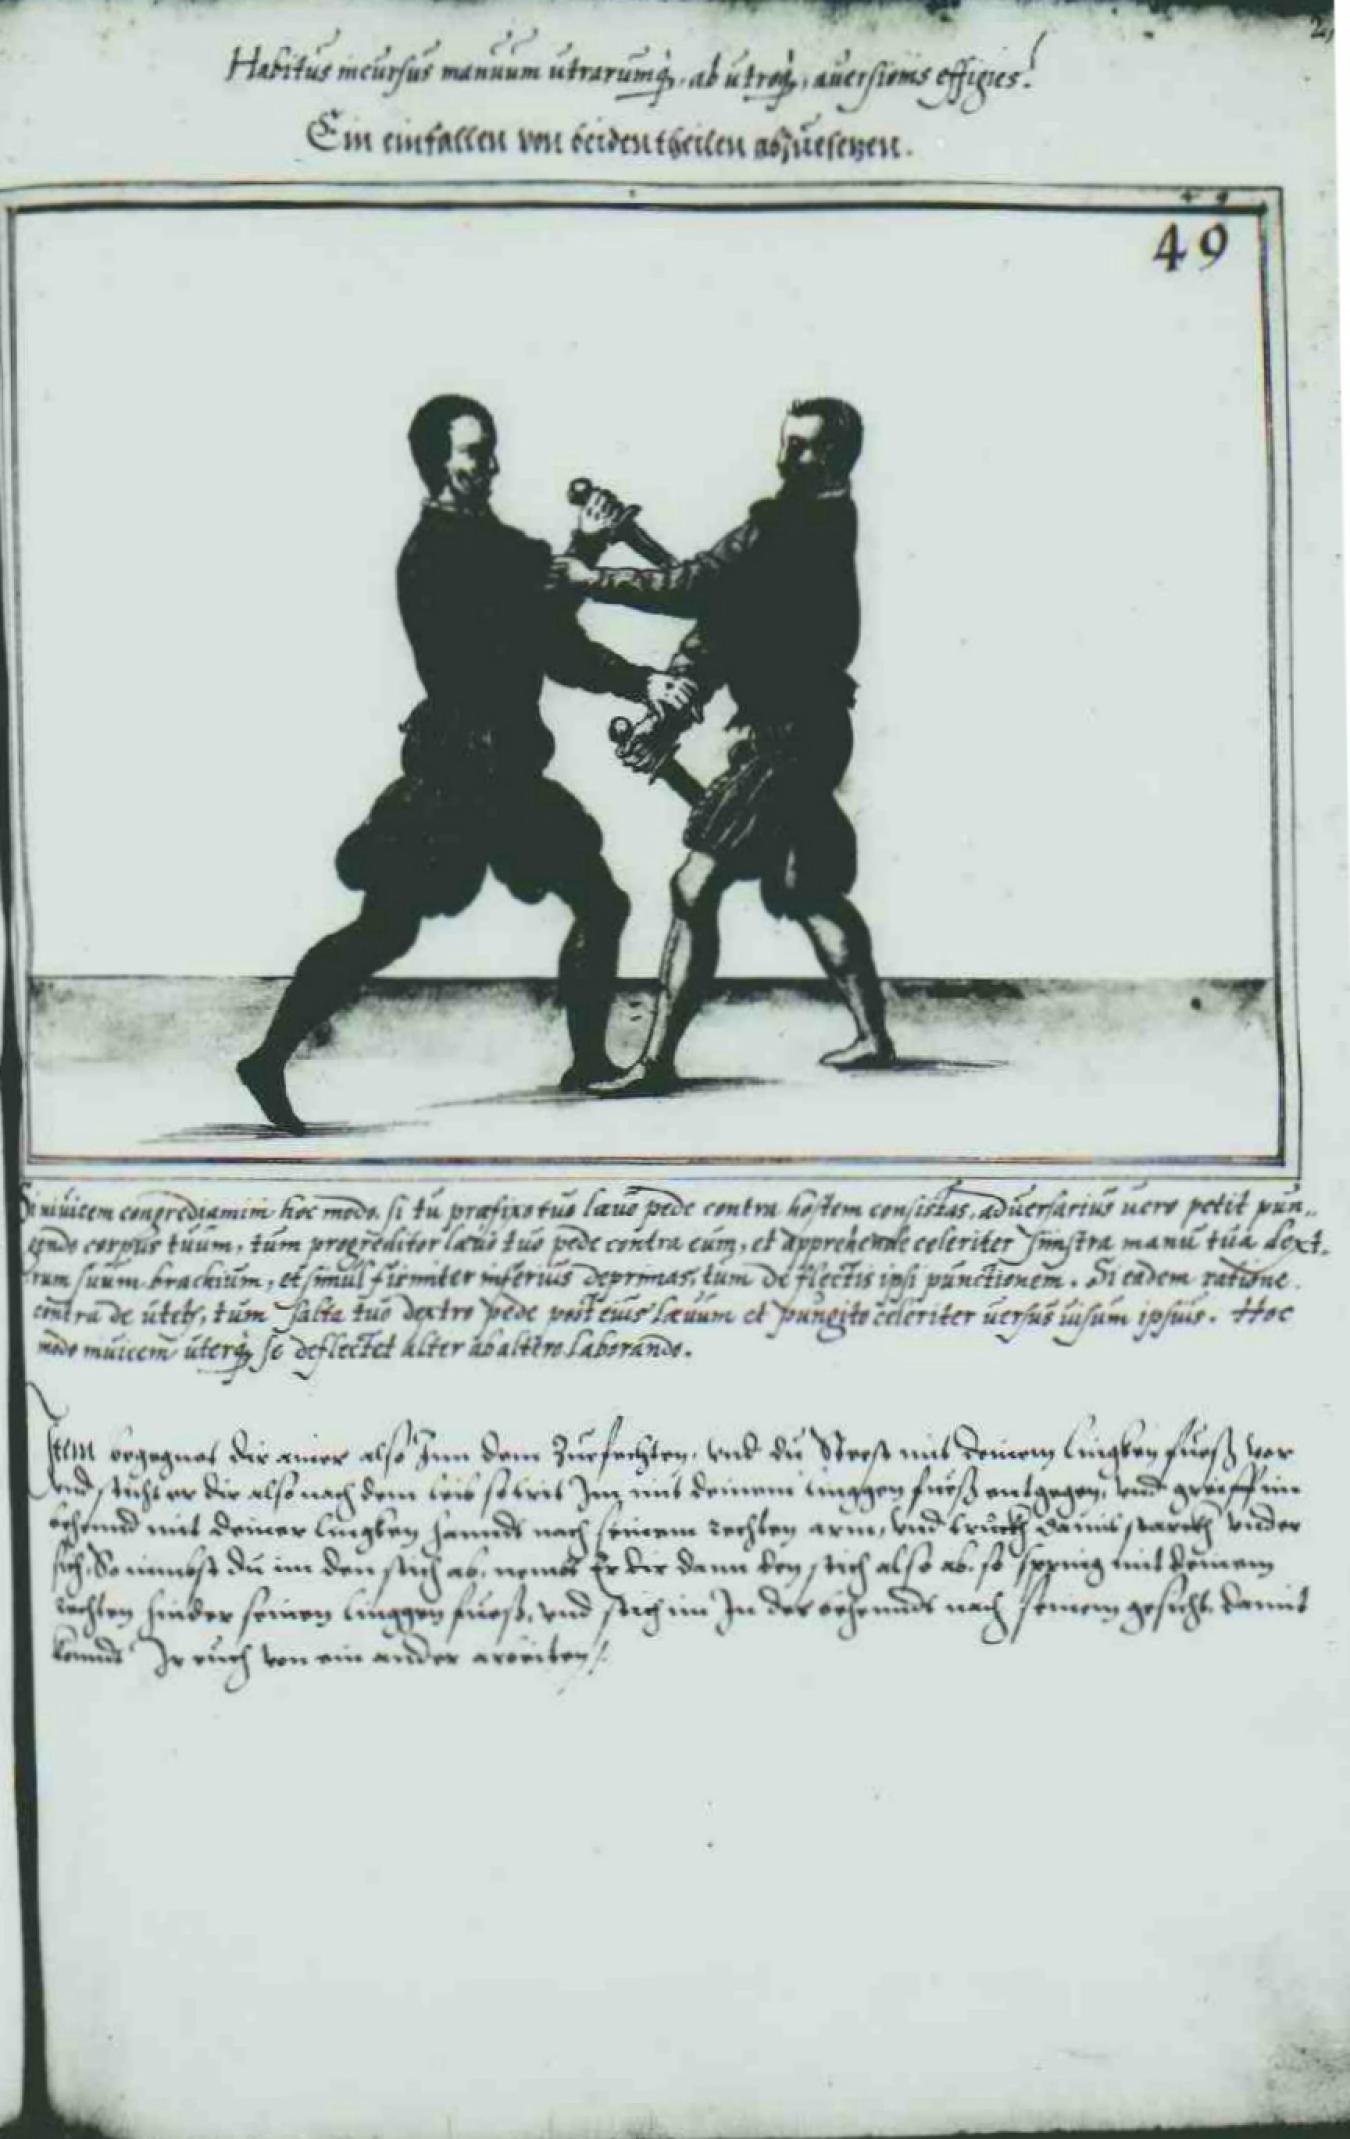 Habitus incursus manuum utrarumq́, ab utroq́, auersionis effigies.
Ein einfallen von beiden theilen abzuesetzen.
49
Si inuicem congrediamini hoc modo, si tu præfixo tuo læuo pede contra hostem consistas, aduersarius uero petit pun„
gendo corpus tuum, tum progreditor læuo tuo pede contra eum, et apprehende celeriter sinistra manu tua dext„
rum suum brachium, et simul firmiter inferius deprimas, tum deflectis ipsi punctionem. Si eadem ratione
contra de utetr, tum salta tuo dextro pede post eius læuum et pungito celeriter uersus uisum ipsius. Hoc
modo inuicem uterq́ se deflectet alter ab altero laborando.
Item begegnet dir ainer also Inn dem Zuefechten, vnd du steest mit deinem lingken fuesß vor
vnd sticht er dir also nach dem leib so trit Im mit deinem linggen fuesß entgegen, vnd greiff im
behennd mit deiner lingken hannd nach seinem rechten arm, vnd truckh damit starckh vnder
sich, So nimbst du im den stich ab, nembt Er dir dann den stich also ab, so spring mit deinem
rechten hinder seinen linggen fuesß, vnd stich im In der behennde nach seinem gesicht, damit
kombt Ir euch von ein ander arbeiten